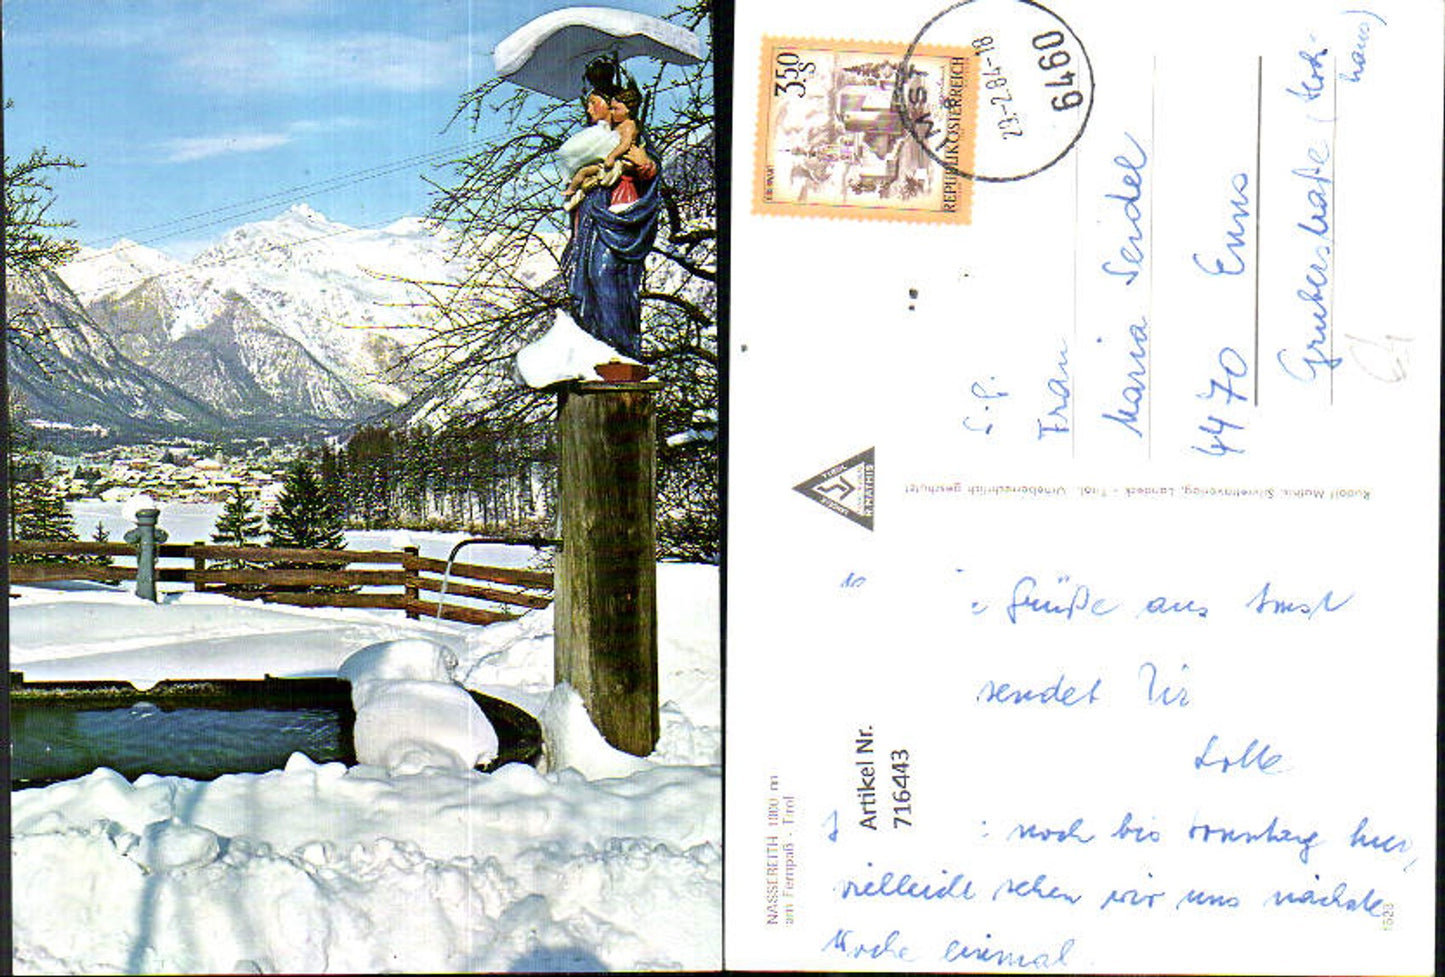 3.50
S
REPUBLIK ÖSTERREICH
IMST
29-2.84-18
6460
Frau
Maria Seidel
4470 Enns
Gruberstraße (Hoch-
haus)
R. MATHIS
Rudolf Mathis, Silvrettaverlag, Landeck - Tirol. Urheberrechtlich geschützt
Grüße aus Imst
sendet Dir
Lotte
noch bis Sonntag hier,
vielleicht sehen wir uns nächste
Woche einmal.
Artikel Nr.
716443
NASSEREITH 1000 m
am Fernpaß - Tirol
1523